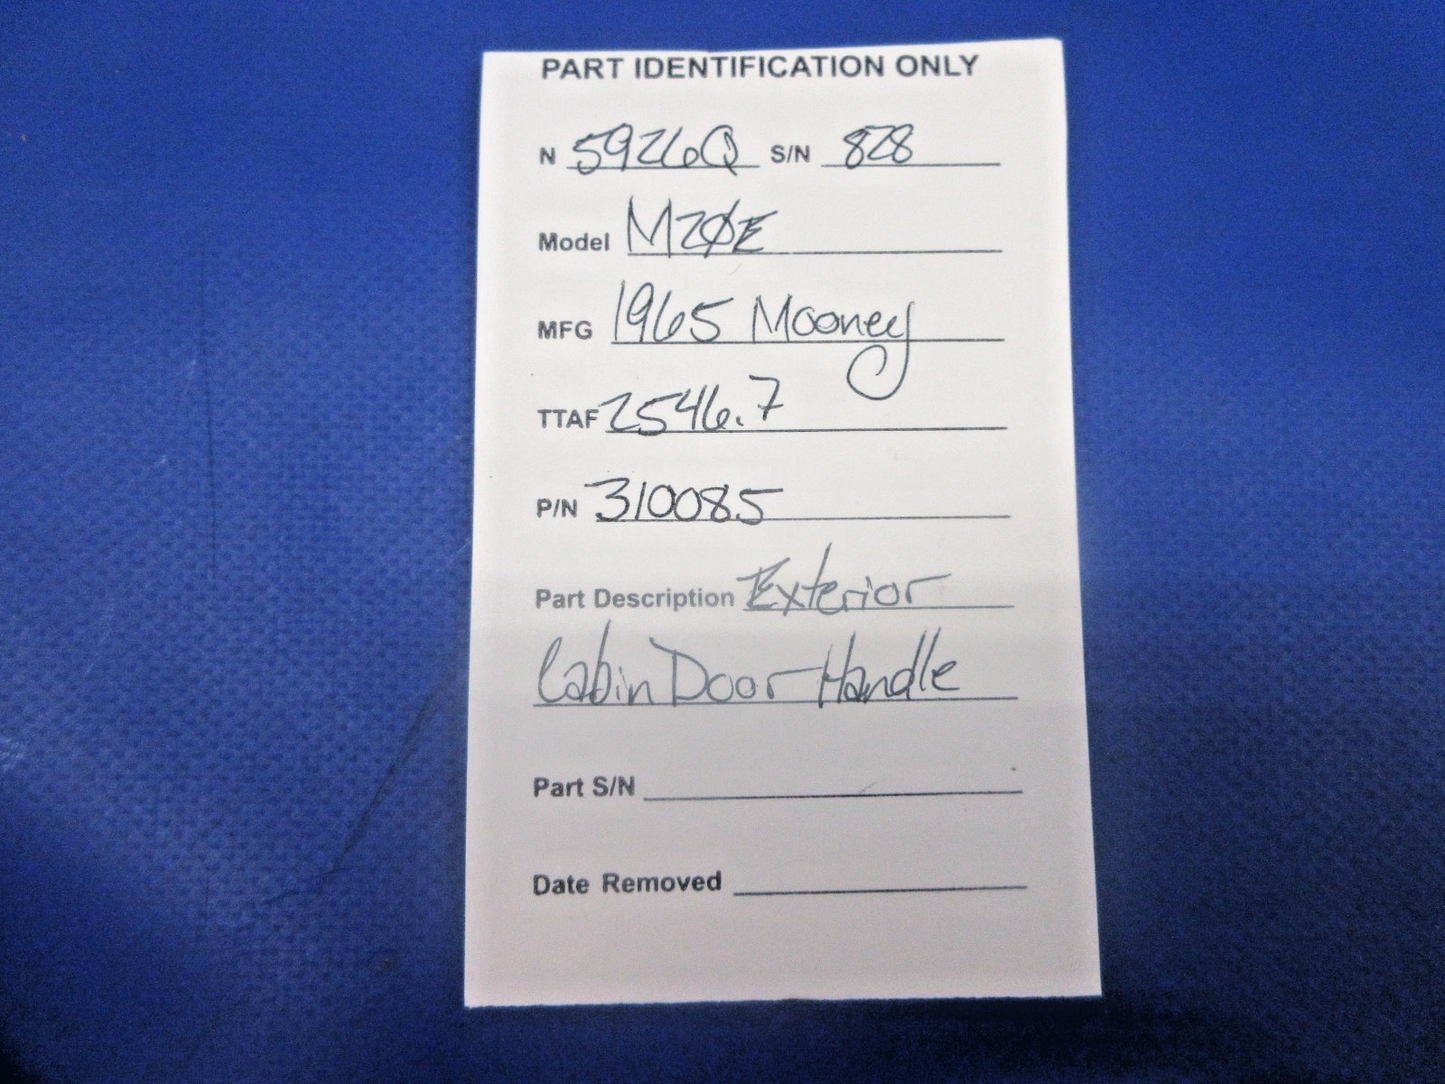 PART IDENTIFICATION ONLY
N 5926Q S/N 828
Model M2ØE
MFG 1965 Mooney
TTAF 2546.7
P/N 310085
Part Description Exterior
Cabin Door Handle
Part S/N
Date Removed